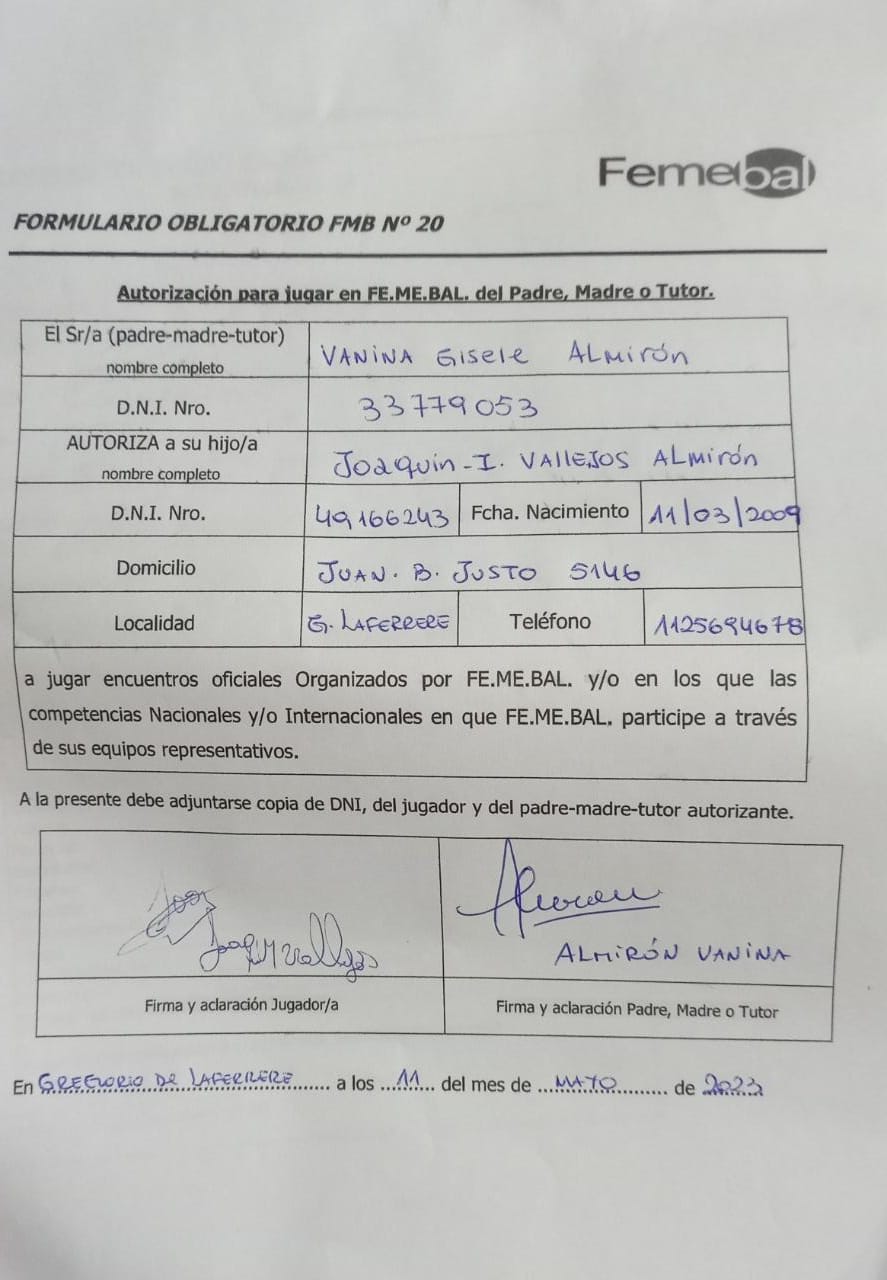 Femebal
FORMULARIO OBLIGATORIO FMB Nº 20
Autorización para jugar en FE.ME.BAL. del Padre, Madre o Tutor.
El Sr/a (padre-madre-tutor)
nombre completo
VANINA GISELE ALMIRÓN
D.N.I. Nro.
33779053
AUTORIZA a su hijo/a
nombre completo
JOAQUÍN-I. VALLEJOS ALMIRÓN
D.N.I. Nro.
49166243
Fcha. Nacimiento
11/03/2009
Domicilio
JUAN. B. JUSTO 5146
Localidad
G. LAFERRERE
Teléfono
1125694678
a jugar encuentros oficiales Organizados por FE.ME.BAL. y/o en los que las
competencias Nacionales y/o Internacionales en que FE.ME.BAL. participe a través
de sus equipos representativos.
A la presente debe adjuntarse copia de DNI, del jugador y del padre-madre-tutor autorizante.
Joaquin vallejos
ALMIRÓN VANINA
Firma y aclaración Jugador/a
Firma y aclaración Padre, Madre o Tutor
En GREGORIO DE LAFERRERE a los 11 del mes de MAYO de 2023